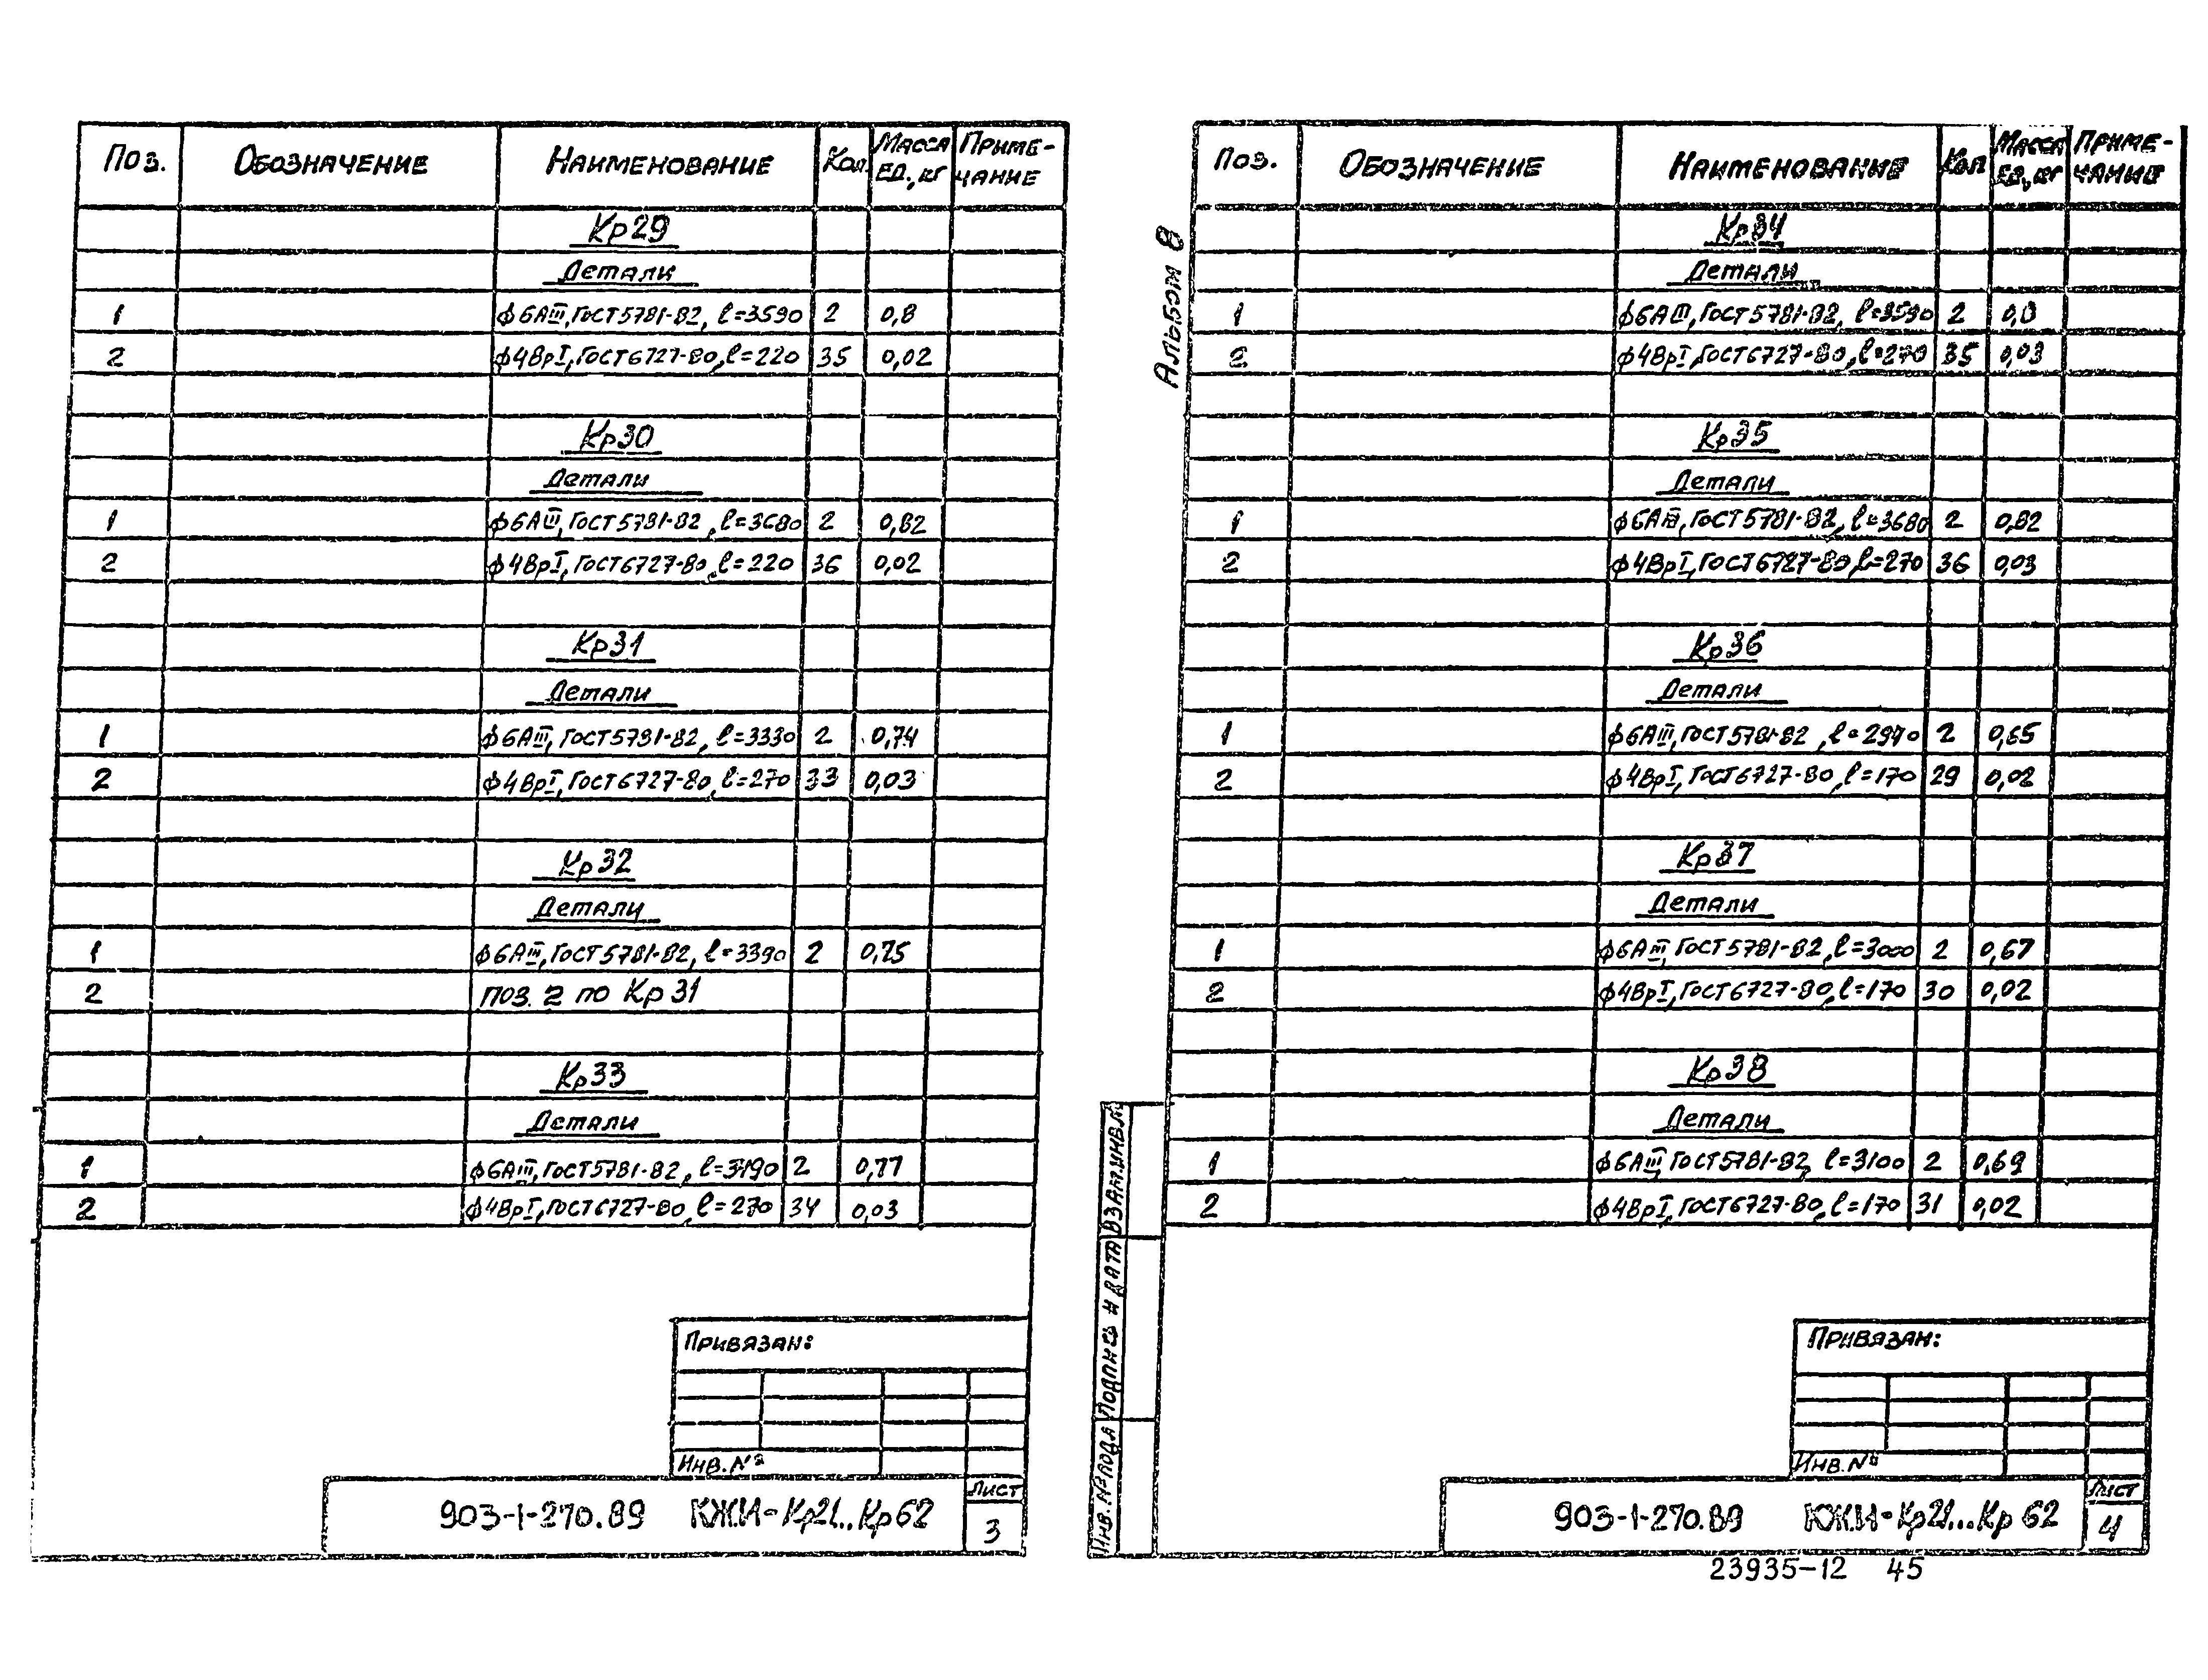 Поз. Обозначение Наименование Кол. Масса ед., кг Приме-чание
Кр29
Детали
1 ϕ6АIII, ГОСТ 5781-82, ℓ=3590 2 0,8
2 ϕ4ВрI, ГОСТ 6727-80, ℓ=220 35 0,02
Кр30
Детали
1 ϕ6АIII, ГОСТ 5781-82, ℓ=3680 2 0,82
2 ϕ4ВрI, ГОСТ 6727-80, ℓ=220 36 0,02
Кр31
Детали
1 ϕ6АIII, ГОСТ 5781-82, ℓ=3330 2 0,74
2 ϕ4ВрI, ГОСТ 6727-80, ℓ=270 33 0,03
Кр32
Детали
1 ϕ6АIII, ГОСТ 5781-82, ℓ=3390 2 0,75
2 поз. 2 по Кр31
Кр33
Детали
1 ϕ6АIII, ГОСТ 5781-82, ℓ=3490 2 0,77
2 ϕ4ВрI, ГОСТ 6727-80, ℓ=270 34 0,03
Привязан:
Инв. №
903-1-270.89 КЖИ-Кр21...Кр62
Лист
3
Альбом 8
Поз. Обозначение Наименование Кол Масса ед., кг Приме-чание
Кр34
Детали
1 ϕ6АIII, ГОСТ 5781-82, ℓ=3590 2 0,8
2 ϕ4ВрI, ГОСТ 6727-80, ℓ=270 35 0,03
Кр35
Детали
1 ϕ6АIII, ГОСТ 5781-82, ℓ=3680 2 0,82
2 ϕ4ВрI, ГОСТ 6727-80, ℓ=270 36 0,03
Кр36
Детали
1 ϕ6АIII, ГОСТ 5781-82, ℓ=2940 2 0,65
2 ϕ4ВрI, ГОСТ 6727-80, ℓ=170 29 0,02
Кр37
Детали
1 ϕ6АIII, ГОСТ 5781-82, ℓ=3000 2 0,67
2 ϕ4ВрI, ГОСТ 6727-80, ℓ=170 30 0,02
Кр38
Детали
1 ϕ6АIII, ГОСТ 5781-82, ℓ=3100 2 0,69
2 ϕ4ВрI, ГОСТ 6727-80, ℓ=170 31 0,02
Инв. № подл Подпись и дата Взам.инв.№
Привязан:
Инв. №
903-1-270.89 КЖИ-Кр21...Кр62
Лист
4
23935-12 45